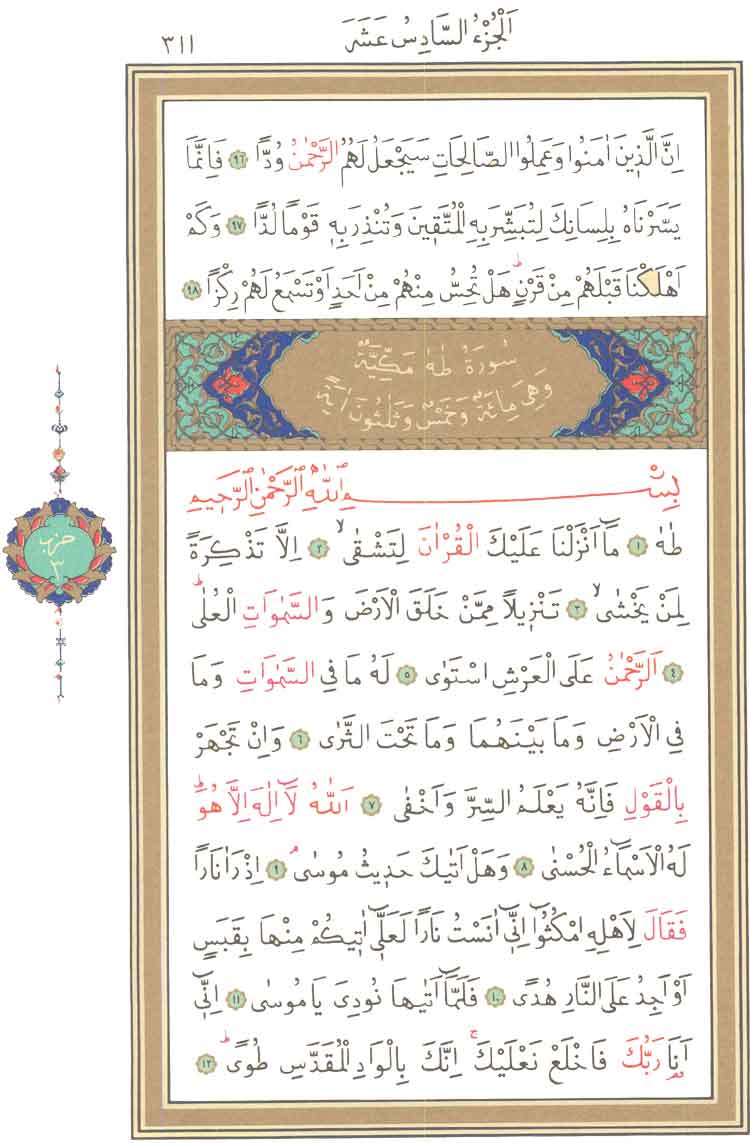 اَلْجُزْءُ السَّادِسُ عَشَرَ
٣١١
اِنَّ الَّذ۪ينَ اٰمَنُوا وَعَمِلُوا الصَّالِحَاتِ سَيَجْعَلُ لَهُمُ الرَّحْمٰنُ وُدًّا ٩٦ فَاِنَّمَا
يَسَّرْنَاهُ بِلِسَانِكَ لِتُبَشِّرَ بِهِ الْمُتَّق۪ينَ وَتُنْذِرَ بِه۪ قَوْمًا لُدًّا ٩٧ وَكَمْ
اَهْلَكْنَا قَبْلَهُمْ مِنْ قَرْنٍۜ هَلْ تُحِسُّ مِنْهُمْ مِنْ اَحَدٍ اَوْ تَسْمَعُ لَهُمْ رِكْزًا ٩٨
سُورَةُ طٰهٰ مَكِّيَّةٌ
وَهِيَ مِائَةٌ وَخَمْسٌ وَثَلٰثُونَ اٰيَةً
بِسْمِ اللّٰهِ الرَّحْمٰنِ الرَّح۪يمِ
طٰهٰ ١ مَٓا اَنْزَلْنَا عَلَيْكَ الْقُرْاٰنَ لِتَشْقٰىۙ ٢ اِلَّا تَذْكِرَةً
لِمَنْ يَخْشٰىۙ ٣ تَنْز۪يلًا مِمَّنْ خَلَقَ الْاَرْضَ وَالسَّمٰوَاتِ الْعُلٰىۜ
٤ اَلرَّحْمٰنُ عَلَى الْعَرْشِ اسْتَوٰى ٥ لَهُ مَا فِي السَّمٰوَاتِ وَمَا
فِي الْاَرْضِ وَمَا بَيْنَهُمَا وَمَا تَحْتَ الثَّرٰى ٦ وَاِنْ تَجْهَرْ
بِالْقَوْلِ فَاِنَّهُ يَعْلَمُ السِّرَّ وَاَخْفٰى ٧ اَللّٰهُ لَٓا اِلٰهَ اِلَّا هُوَۜ
لَهُ الْاَسْمَٓاءُ الْحُسْنٰى ٨ وَهَلْ اَتٰيكَ حَد۪يثُ مُوسٰىۢ ٩ اِذْ رَاٰ نَارًا
فَقَالَ لِاَهْلِهِ امْكُثُٓوا اِنّ۪ٓي اٰنَسْتُ نَارًا لَعَلّ۪ٓي اٰت۪يكُمْ مِنْهَا بِقَبَسٍ
اَوْ اَجِدُ عَلَى النَّارِ هُدًى ١٠ فَلَمَّٓا اَتٰيهَا نُودِيَ يَا مُوسٰى ١١ اِنّ۪ٓي
اَنَا۬ رَبُّكَ فَاخْلَعْ نَعْلَيْكَۚ اِنَّكَ بِالْوَادِ الْمُقَدَّسِ طُوًىۜ ١٢
حزب
٣